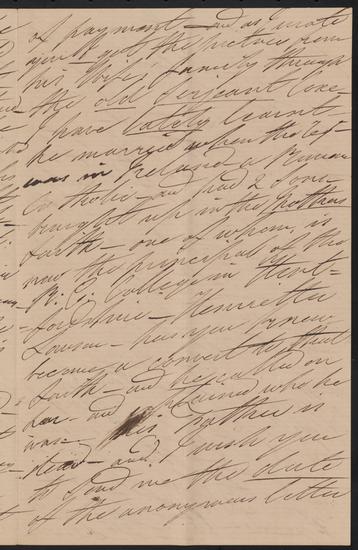 of payment – and as I wrote
you – got the picture from
his Wife's family through
the old Serjeant Coxe –
I have lately learnt –
he married when the Regt
was in Ireland a Roman
Catholic – and had 2 Sons –
brought up in the father's
faith – one of whom is
now the principal of the
R. C. College in Hert –
fordshire – Henrietta
Lawson – has you know
become a convert to that
faith – and he called on
her – and explained who he
was – His father is
dead – and I wish you
to send me the date
of the anonymous letter